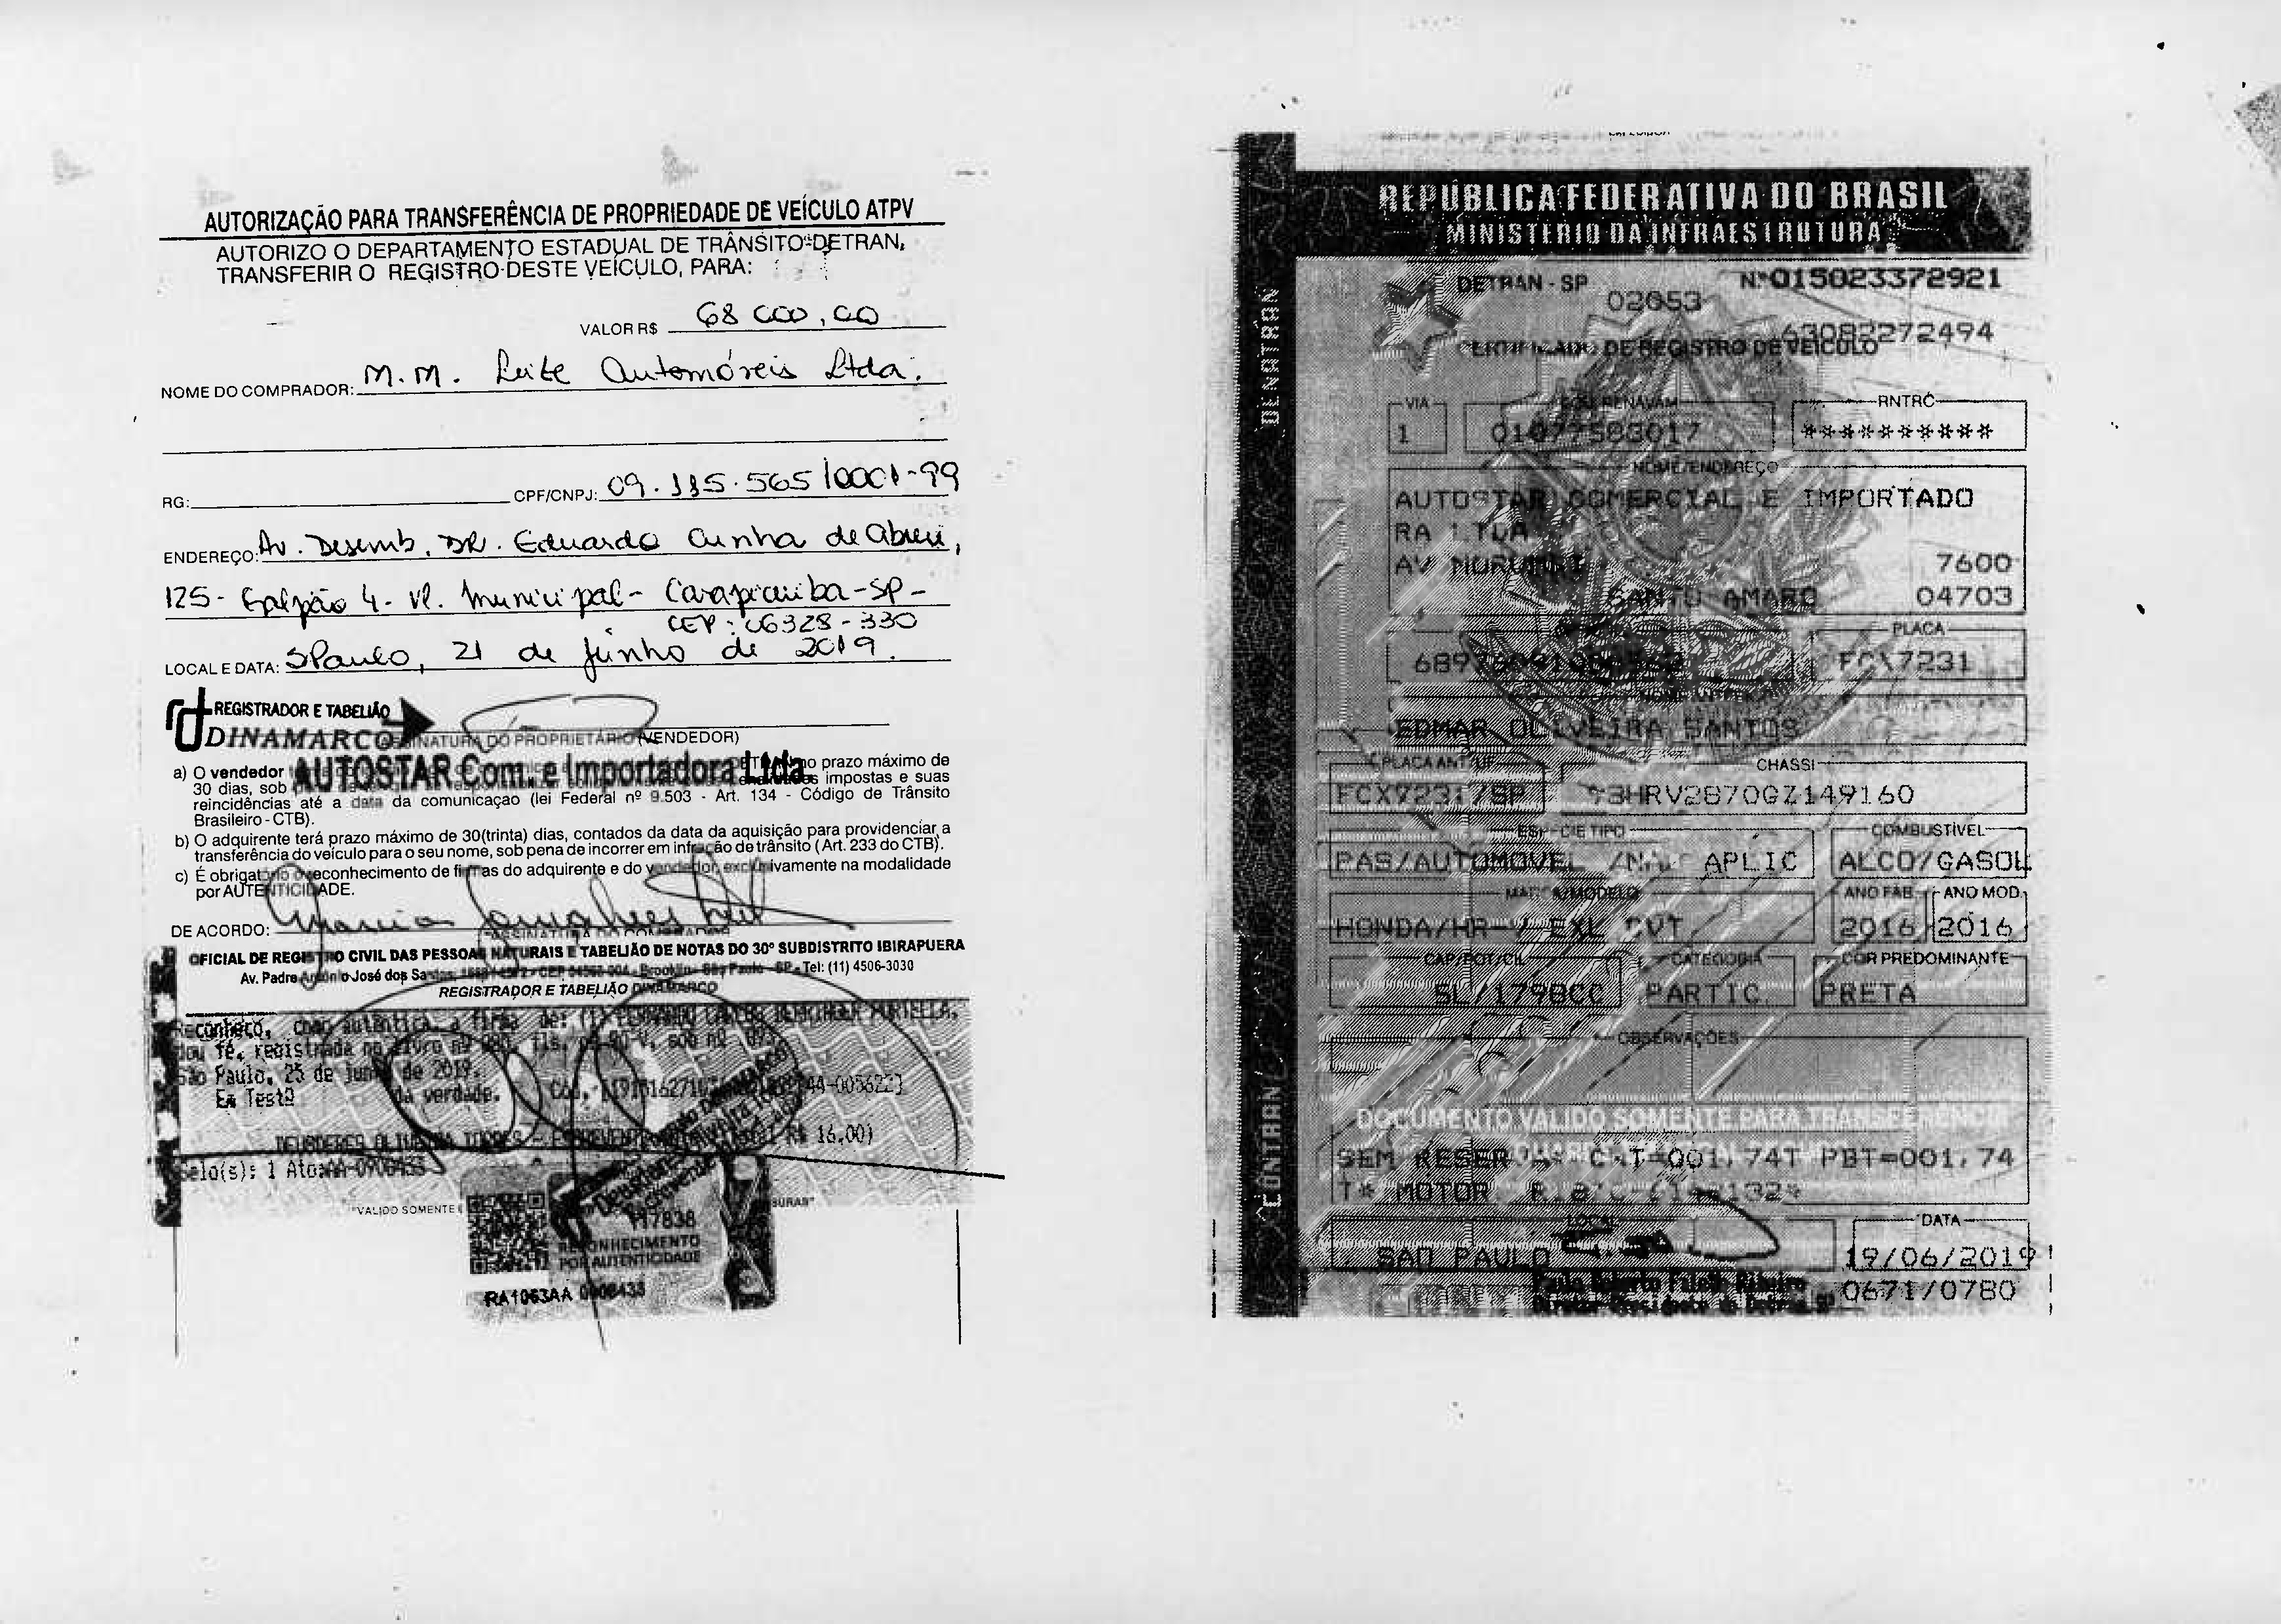 AUTORIZAÇÃO PARA TRANSFERÊNCIA DE PROPRIEDADE DE VEÍCULO ATPV
AUTORIZO O DEPARTAMENTO ESTADUAL DE TRÂNSITO-DETRAN,
TRANSFERIR O REGISTRO DESTE VEÍCULO, PARA:
VALOR R$ 68 000,00
NOME DO COMPRADOR: M.M. Leite Automóveis Ltda.
RG: CPF/CNPJ: 09.115.565/0001-99
ENDEREÇO: Av. Desemb. DR. Eduardo Cunha de Abreu,
125 - Galpão 4 - Vl. Municipal - Carapicuiba - SP -
CEP: 06328-330
LOCAL E DATA: SPaulo, 21 de Junho de 2019.
REGISTRADOR E TABELIÃO
DINAMARCO
ASSINATURA DO PROPRIETÁRIO (VENDEDOR)
AUTOSTAR Com. e Importadora Ltda
a) O vendedor prazo máximo de
30 dias, sob impostas e suas
reincidências até a data da comunicaçao (lei Federal nº 9.503 - Art. 134 - Código de Trânsito
Brasileiro - CTB).
b) O adquirente terá prazo máximo de 30(trinta) dias, contados da data da aquisição para providenciar a
transferência do veículo para o seu nome, sob pena de incorrer em infração de trânsito (Art. 233 do CTB).
c) É obrigatório o reconhecimento de firmas do adquirente e do vendedor, exclusivamente na modalidade
por AUTENTICIDADE.
DE ACORDO:
ASSINATURA DO COMPRADOR
OFICIAL DE REGISTRO CIVIL DAS PESSOAS NATURAIS E TABELIÃO DE NOTAS DO 30º SUBDISTRITO IBIRAPUERA
Av. Padre Antônio José dos Santos, Brooklin - São Paulo - SP - Tel: (11) 4506-3030
REGISTRADOR E TABELIÃO DINAMARCO
Reconheço, como autêntica, a firma de: (1)
dou fé, registrada no livro nº
São Paulo, 25 de junho de 2019.
Em Testº da verdade.
16,00)
Selo(s): 1 Ato:AA-0906433
"VALIDO SOMENTE
117838
RECONHECIMENTO
POR AUTENTICIDADE
RA1063AA 0906433
REPÚBLICA FEDERATIVA DO BRASIL
MINISTÉRIO DA INFRAESTRUTURA
DENATRAN
CONTRAN
DETRAN - SP Nº 015023372921
02053
63082272494
CERTIFICADO DE REGISTRO DE VEÍCULO
VIA CÓD. RENAVAM RNTRC
1 01077583017 **********
NOME/ENDEREÇO
AUTOSTAR COMERCIAL E IMPORTADO
RA LTDA
AV MORUMBI 7600
SANTO AMARO 04703
PLACA
FCX7231
EDMAR OLIVEIRA SANTOS
PLACA ANT/UF CHASSI
FCX7231/SP 93HRV2870GZ149160
ESPÉCIE TIPO COMBUSTÍVEL
PAS/AUTOMOVEL /NAO APLIC ALCO/GASOL
MARCA/MODELO ANO FAB. ANO MOD.
HONDA/HR-V EXL CVT 2016 2016
CAP/POT/CIL CATEGORIA COR PREDOMINANTE
5L/1798CC PARTIC PRETA
OBSERVAÇÕES
DOCUMENTO VALIDO SOMENTE PARA TRANSFERENCIA
SEM RESERVAS CMT=001,74T PBT=001,74
T* MOTOR:
LOCAL DATA
SAO PAULO 19/06/2019
0671/0780